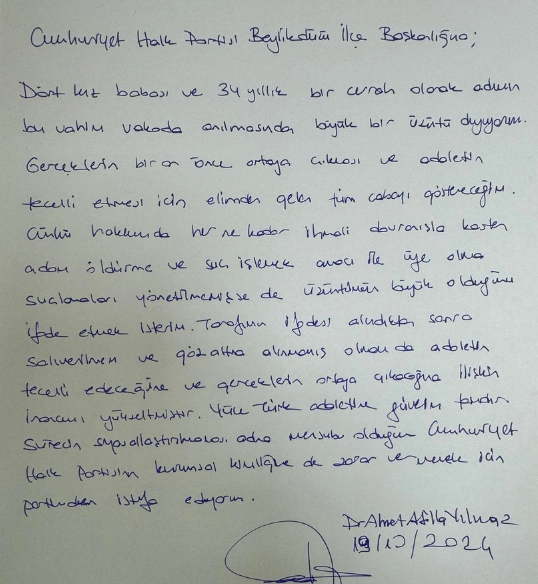 Cumhuriyet Halk Partisi Beylikdüzü İlçe Başkanlığına;
Dört kız babası ve 34 yıllık bir cerrah olarak adımın
bu vahim vakada anılmasında büyük bir üzüntü duyuyorum.
Gerçeklerin bir an önce ortaya çıkması ve adaletin
tecelli etmesi için elimden gelen tüm çabayı göstereceğim.
Çünkü hakkımda her ne kadar ihmali davranışla kasten
adam öldürme ve suç işlemek amacı ile üye olma
suçlamaları yöneltilmemişse de üzüntümün büyük olduğunu
ifade etmek isterim. Tarafımın ifadesi alındıktan sonra
salıverilmem ve gözaltına alınmamış olmam da adaletin
tecelli edeceğine ve gerçeklerin ortaya çıkacağına ilişkin
inancımı yükseltmiştir. Yüce Türk adaletine güvenim tamdır.
Sürecin siyasallaştırılmaması adına mensubu olduğum Cumhuriyet
Halk Partisinin kurumsal kimliğine de zarar vermemek için
partimden istifa ediyorum.
Dr Ahmet Atilla Yılmaz
19/10/2024